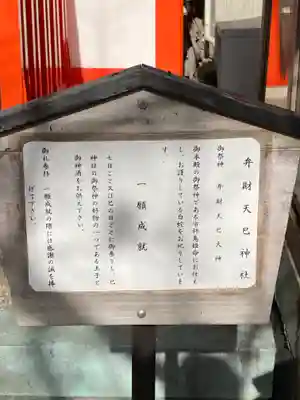 弁財天巳神社
御祭神　弁財天巳大神
御本殿の御祭神である市杵島姫命にお仕え
し、お護りしている白蛇をお祀りしていま
す。
一願成就
七日ごと又は巳の日ごとに御参りし、巳
神様の御祭神の好物の一つである玉子と
御神酒をお供え下さい。
御礼参拝
一願成就の際には感謝の誠を捧
げて下さい。